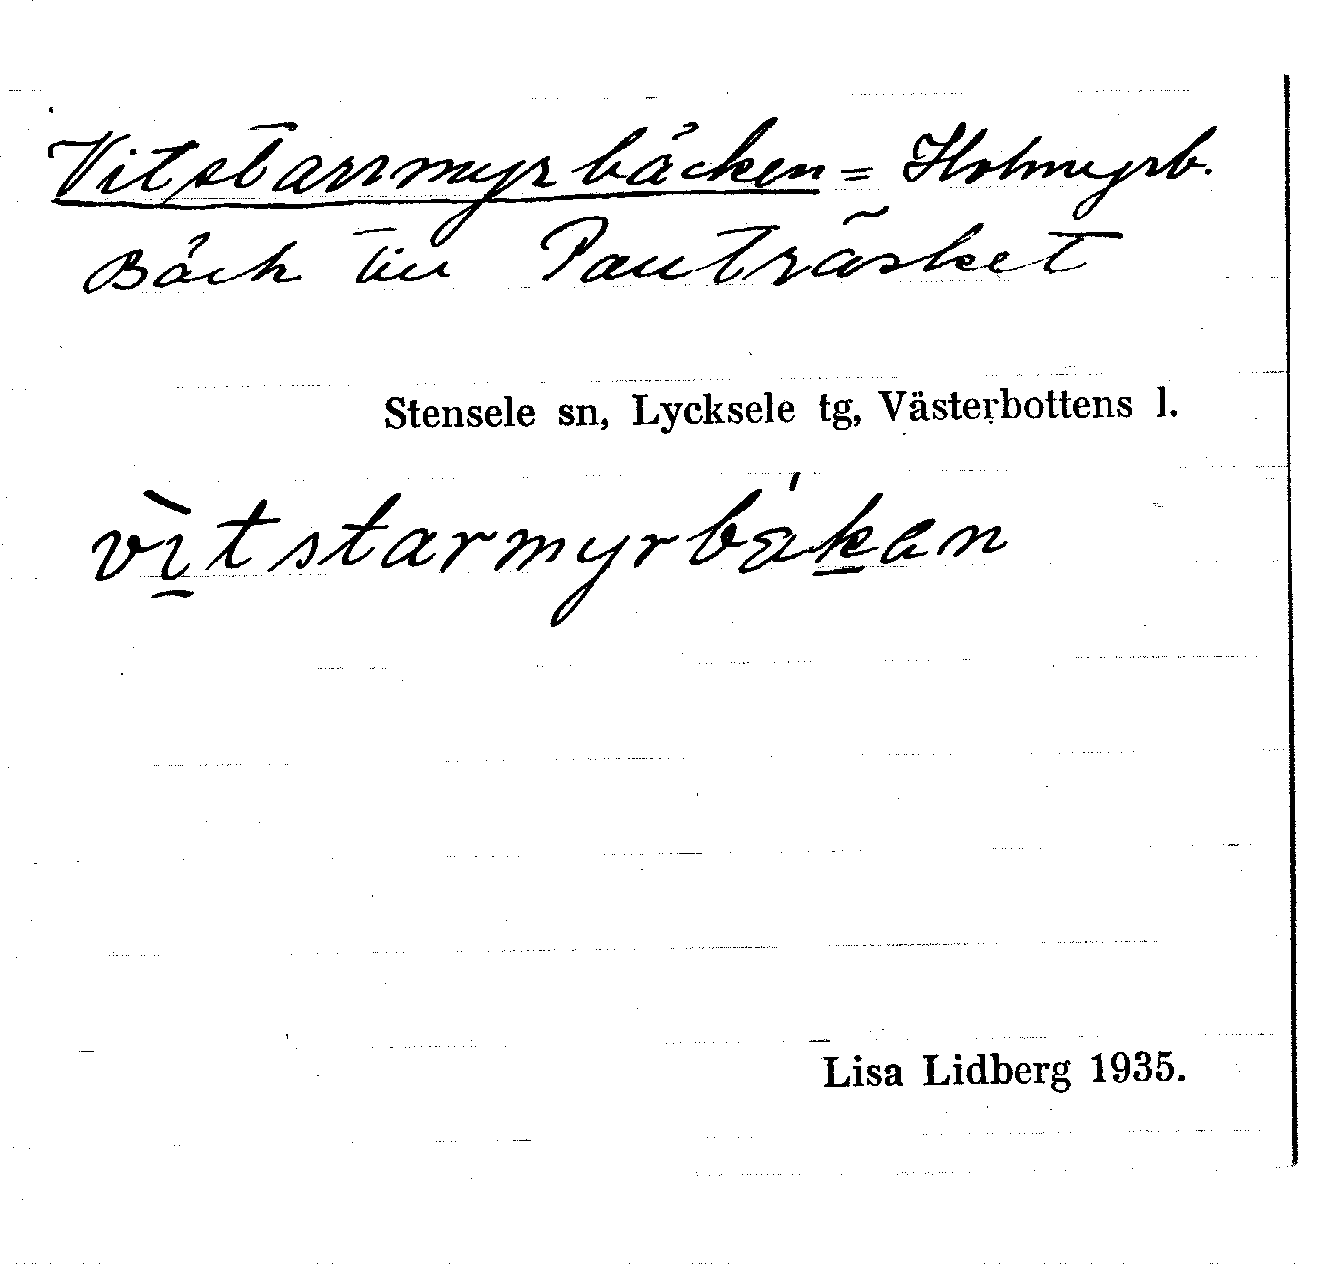 Vitstarrmyrbäcken = Holmyrb.
Bäck till Pauträsket
Stensele sn, Lycksele tg, Västerbottens l.
vìtstarmyrbákan
Lisa Lidberg 1935.